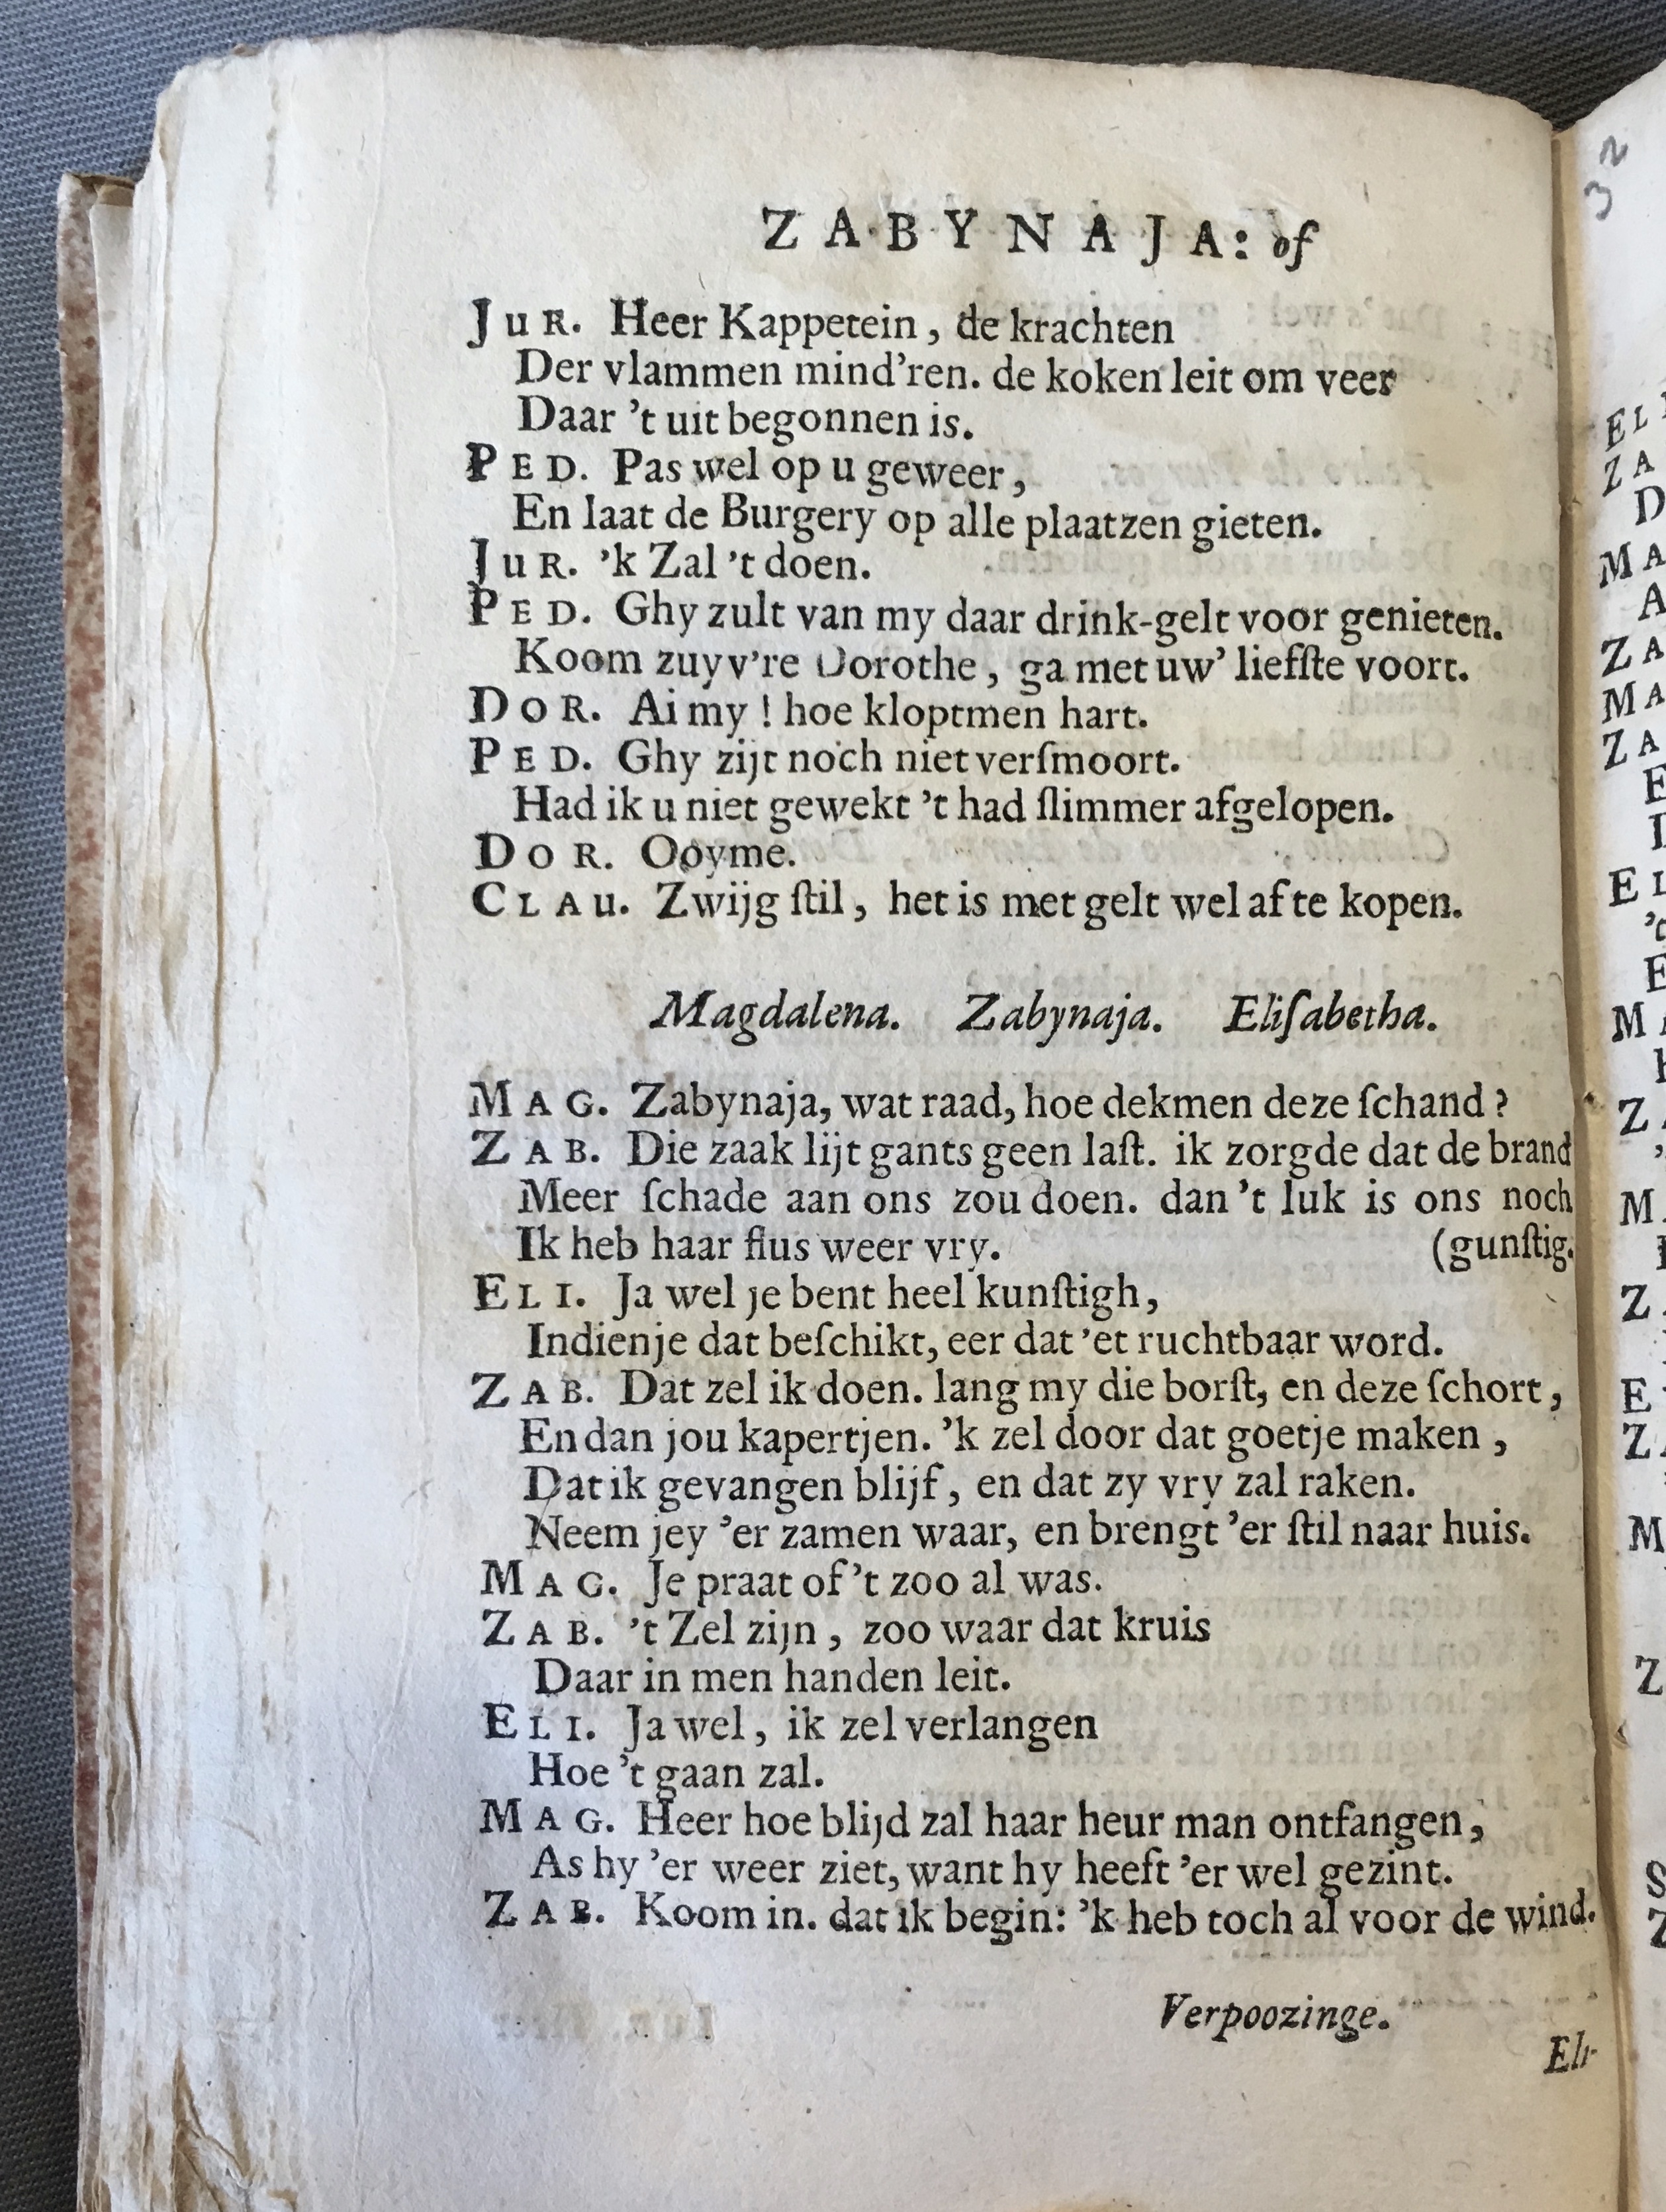 ZABYNAJA: of
JUR. Heer Kappetein, de krachten
Der vlammen mind'ren. de koken leit om veer
Daar 't uit begonnen is.
PED. Pas wel op u geweer,
En laat de Burgery op alle plaatzen gieten.
JUR. 'k Zal 't doen.
PED. Ghy zult van my daar drink-gelt voor genieten.
Koom zuyv're Dorothe, ga met uw' liefſte voort.
DOR. Ai my! hoe kloptmen hart.
PED. Ghy zijt noch niet verſmoort.
Had ik u niet gewekt 't had ſlimmer afgelopen.
DOR. Ooyme.
CLAU. Zwijg ſtil, het is met gelt wel af te kopen.
Magdalena. Zabynaja. Eliſabetha.
MAG. Zabynaja, wat raad, hoe dekmen deze ſchand?
ZAB. Die zaak lijt gants geen laſt. ik zorgde dat de brand
Meer ſchade aan ons zou doen. dan 't luk is ons noch
Ik heb haar flus weer vry. (gunſtig.
ELI. Ja wel je bent heel kunſtigh,
Indienje dat beſchikt, eer dat 'et ruchtbaar word.
ZAB. Dat zel ik doen. lang my die borſt, en deze ſchort,
En dan jou kapertjen. 'k zel door dat goetje maken,
Dat ik gevangen blijf, en dat zy vry zal raken.
Neem jey 'er zamen waar, en brengt 'er ſtil naar huis.
MAG. Je praat of 't zoo al was.
ZAB. 't Zel zijn, zoo waar dat kruis
Daar in men handen leit.
ELI. Ja wel, ik zel verlangen
Hoe 't gaan zal.
MAG. Heer hoe blijd zal haar heur man ontfangen,
As hy 'er weer ziet, want hy heeft 'er wel gezint.
ZAB. Koom in. dat ik begin: 'k heb toch al voor de wind.
Verpoozinge.
Eli-
32